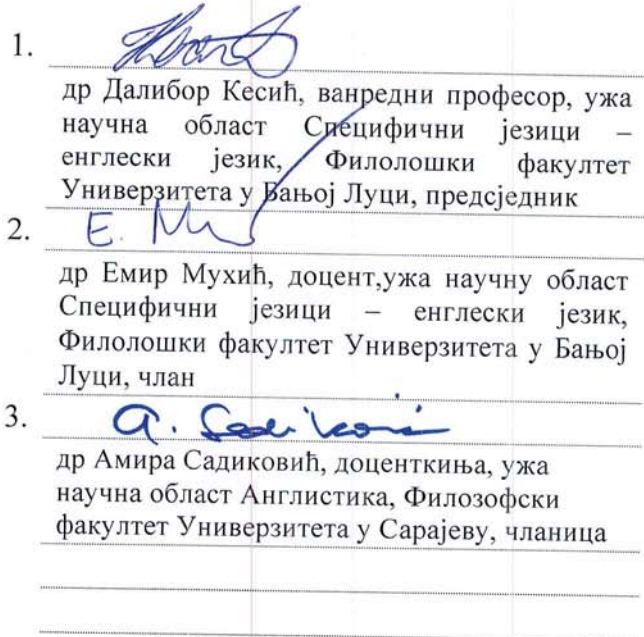 1.
др Далибор Кесић, ванредни професор, ужа
научна област Специфични језици –
енглески језик, Филолошки факултет
Универзитета у Бањој Луци, предсједник
2. E.
др Емир Мухић, доцент,ужа научну област
Специфични језици – енглески језик,
Филолошки факултет Универзитета у Бањој
Луци, члан
3. A. Sadiković
др Амира Садиковић, доценткиња, ужа
научна област Англистика, Филозофски
факултет Универзитета у Сарајеву, чланица